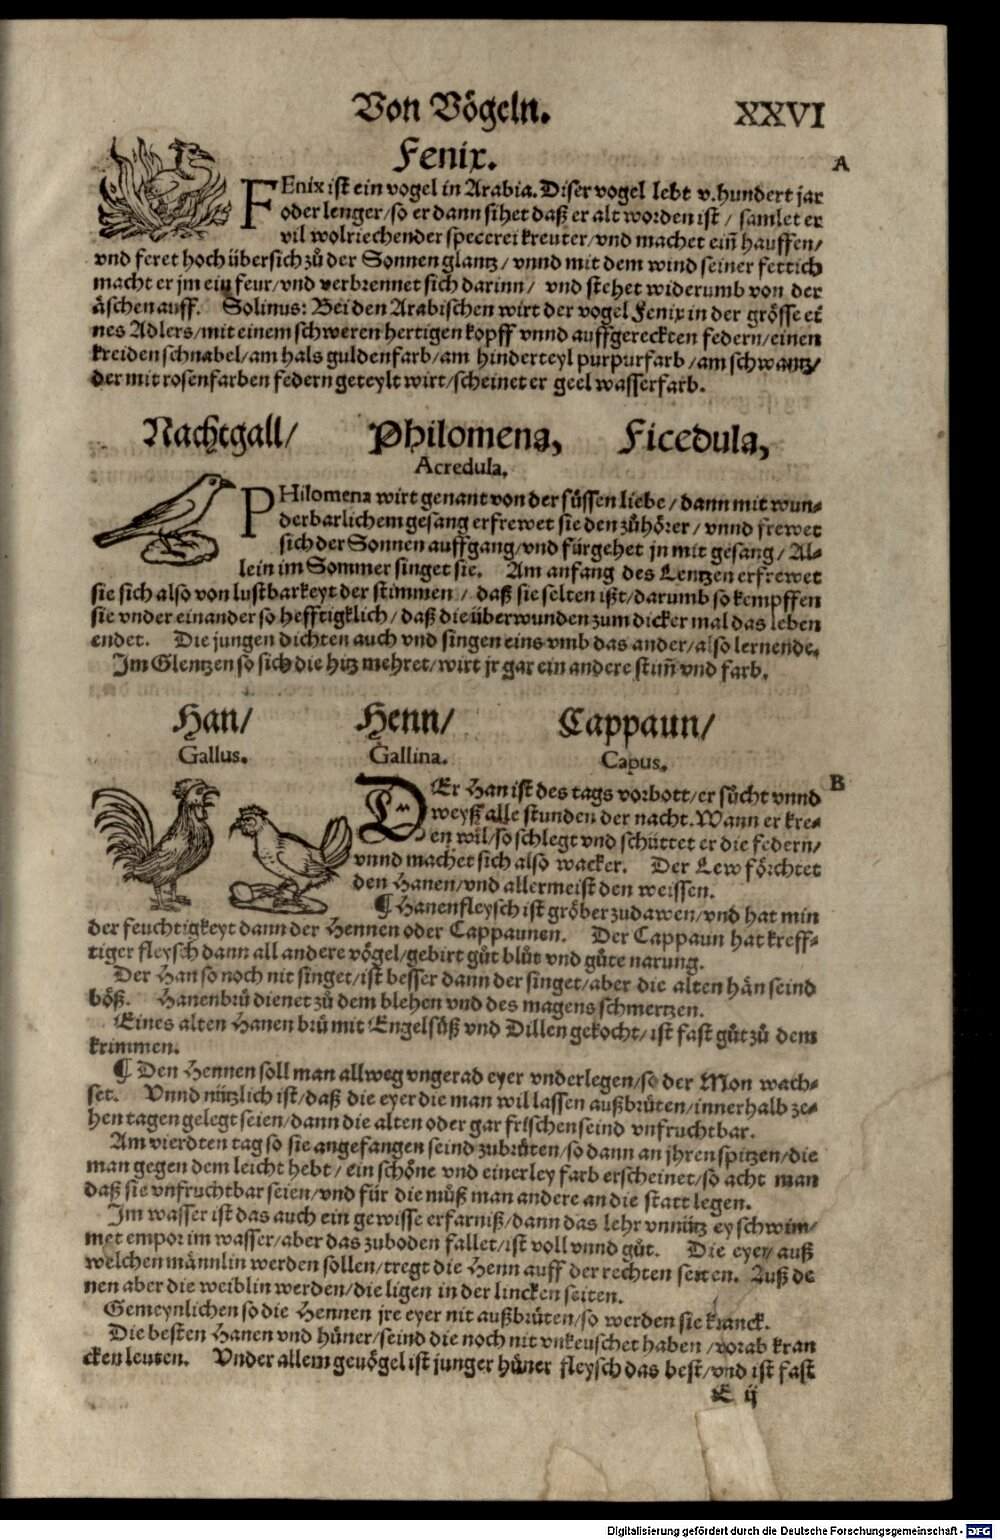 Von Vögeln.
XXVI
Fenix.
A
FEnix ist ein vogel in Arabia. Diser vogel lebt v. hundert jar
oder lenger/so er dann sihet daß er alt worden ist / samlet er
vil wolriechender specerei kreuter/vnd machet ein̄ hauffen/
vnd feret hoch übersich zů der Sonnen glantz/ vnnd mit dem wind seiner fettich
macht er jm ein feur/vnd verbrennet sich darinn/ vnd stehet widerumb von der
äschen auff. Solinus: Bei den Arabischen wirt der vogel Fenix in der grösse ei
nes Adlers/mit einem schweren hertigen kopff vnnd auffgereckten federn/einen
kreiden schnabel/am hals guldenfarb/am hinderteyl purpurfarb/am schwantz/
der mit rosenfarben federn geteylt wirt/scheinet er geel wasserfarb.
Nachtgall/ Philomena, Ficedula,
Acredula.
PHilomena wirt genant von der süssen liebe/ dann mit wun-
derbarlichem gesang erfrewet sie den zůhörer/ vnnd frewet
sich der Sonnen auffgang/vnd fürgehet jn mit gesang/ Al-
lein im Sommer singet sie. Am anfang des Lentzen erfrewet
sie sich also von lustbarkeyt der stimmen / daß sie selten ißt/darumb so kempffen
sie vnder einander so hefftigklich/ daß die überwunden zum dicker mal das leben
endet. Die jungen dichten auch vnd singen eins vmb das ander/also lernende.
Im Glentzen so sich die hitz mehret/wirt jr gar ein andere stim̄ vnd farb.
Han/ Henn/ Cappaun/
Gallus. Gallina. Capus.
B
DEr Han ist des tags vorbott/er sůcht vnnd
weyß alle stunden der nacht. Wann er kre-
en wil/so schlegt vnd schüttet er die federn/
vnnd machet sich also wacker. Der Lew förchtet
den Hanen/vnd allermeist den weissen.
¶ Hanenfleysch ist gröber zudawen/vnd hat min
der feuchtigkeyt dann der Hennen oder Cappaunen. Der Cappaun hat kreff-
tiger fleysch dann all andere vögel/gebirt gůt blůt vnd gůte narung.
Der Han so noch nit singet/ist besser dann der singet/aber die alten hän seind
böß. Hanenbrů dienet zů dem blehen vnd des magens schmertzen.
Eines alten Hanen brů mit Engelsůß vnd Dillen gekocht/ist fast gůt zů dem
krimmen.
¶ Den Hennen soll man allweg vngerad eyer vnderlegen/so der Mon wach-
set. Vnnd nützlich ist/daß die eyer die man wil lassen außbrüten/innerhalb ze-
hen tagen gelegt seien/dann die alten oder gar frischen seind vnfruchtbar.
Am vierdten tag so sie angefangen seind zubrüten/so dann an jhren spitzen/die
man gegen dem leicht hebt/ ein schöne vnd einerley farb erscheinet/so acht man
daß sie vnfruchtbar seien/vnd für die můß man andere an die statt legen.
Im wasser ist das auch ein gewisse erfarniß/dann das lehr vnnütz ey schwim-
met empor im wasser/aber das zuboden fallet/ist voll vnnd gůt. Die eyer/ auß
welchen männlin werden sollen/tregt die Henn auff der rechten seiten. Auß de
nen aber die weiblin werden/die ligen in der lincken seiten.
Gemeynlichen so die Hennen jre eyer nit außbrüten/so werden sie kranck.
Die besten Hanen vnd hüner/seind die noch nit vnkeuschet haben /vorab kran
cken leuten. Vnder allem gevögel ist junger hüner fleysch das best/vnd ist fast
E ij
Digitalisierung gefördert durch die Deutsche Forschungsgemeinschaft - DFG